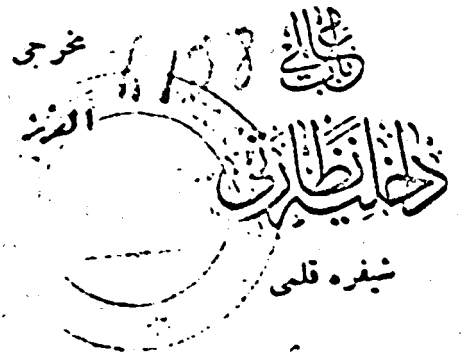 باب عالی
داخلیه نظارتی
شیفره قلمی
مخرجی
العزيز